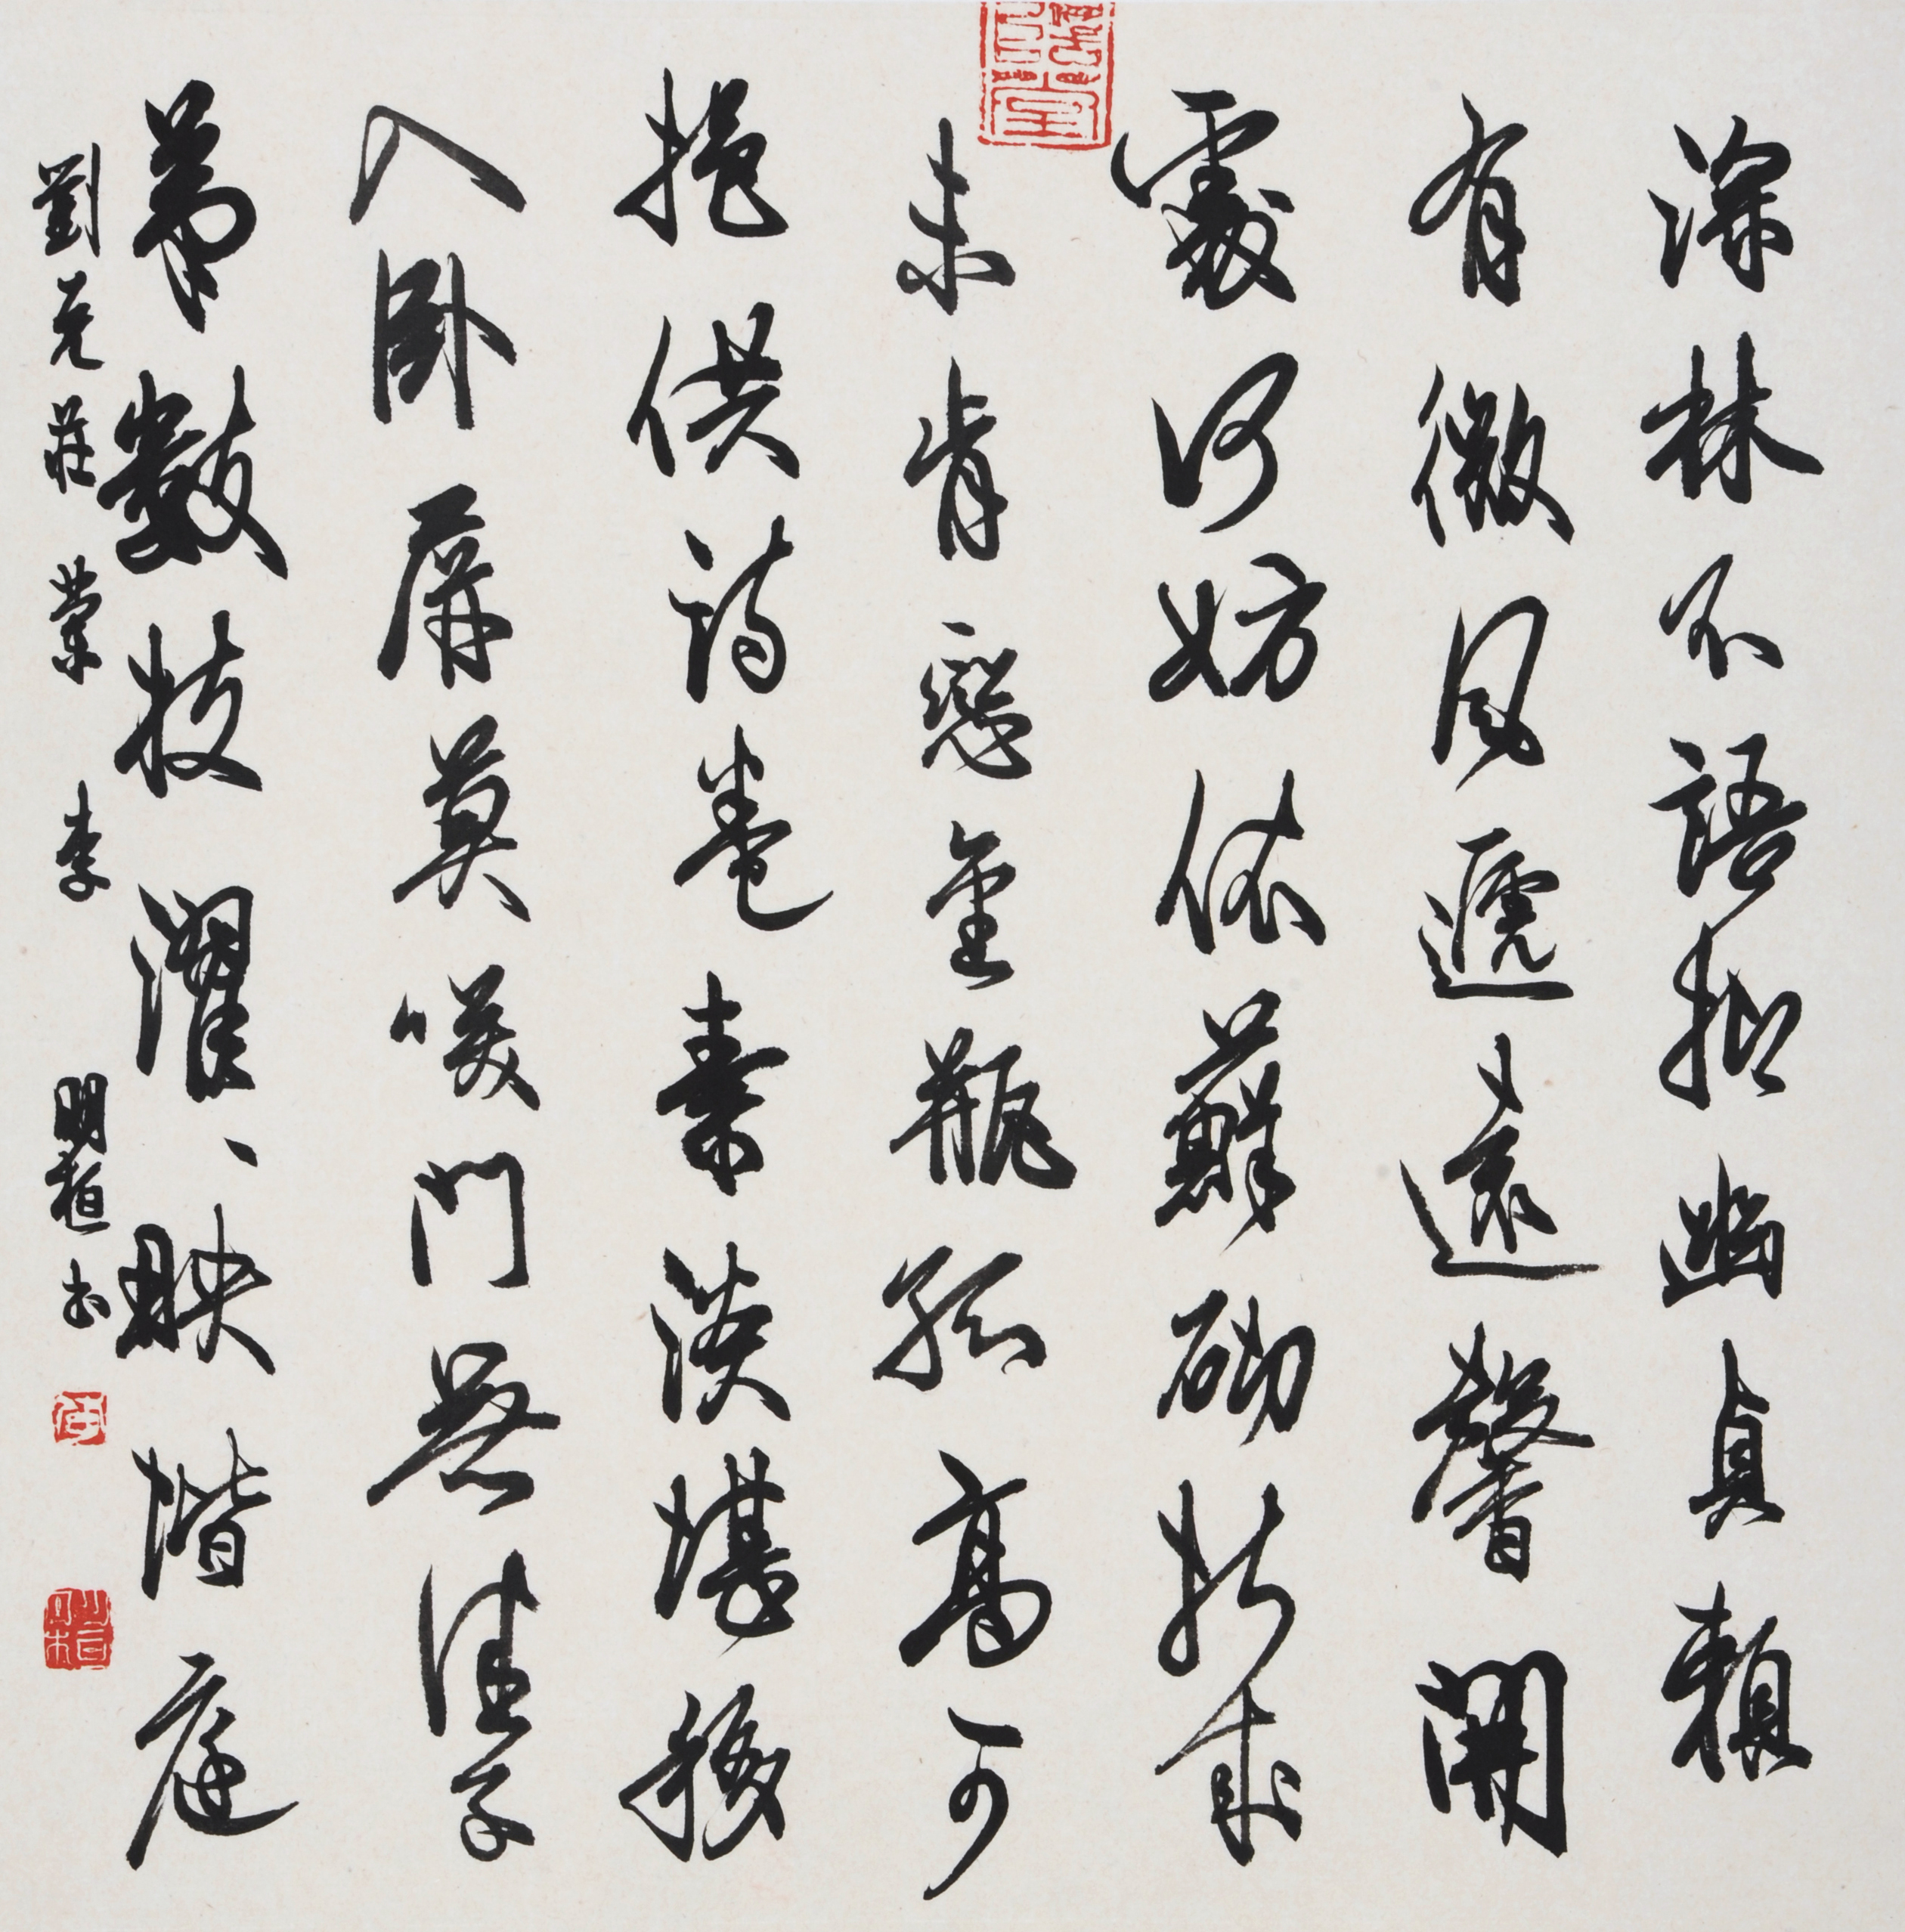 深林不語抱幽貞賴
有微風遞遠馨開
處何妨依蘚砌折來
未肯戀金瓶孤高可
挹供詩卷素淡堪移
入臥屏莫咲門無佳子
弟數枝濯、映階庭
劉克莊 蘭 李明桓书